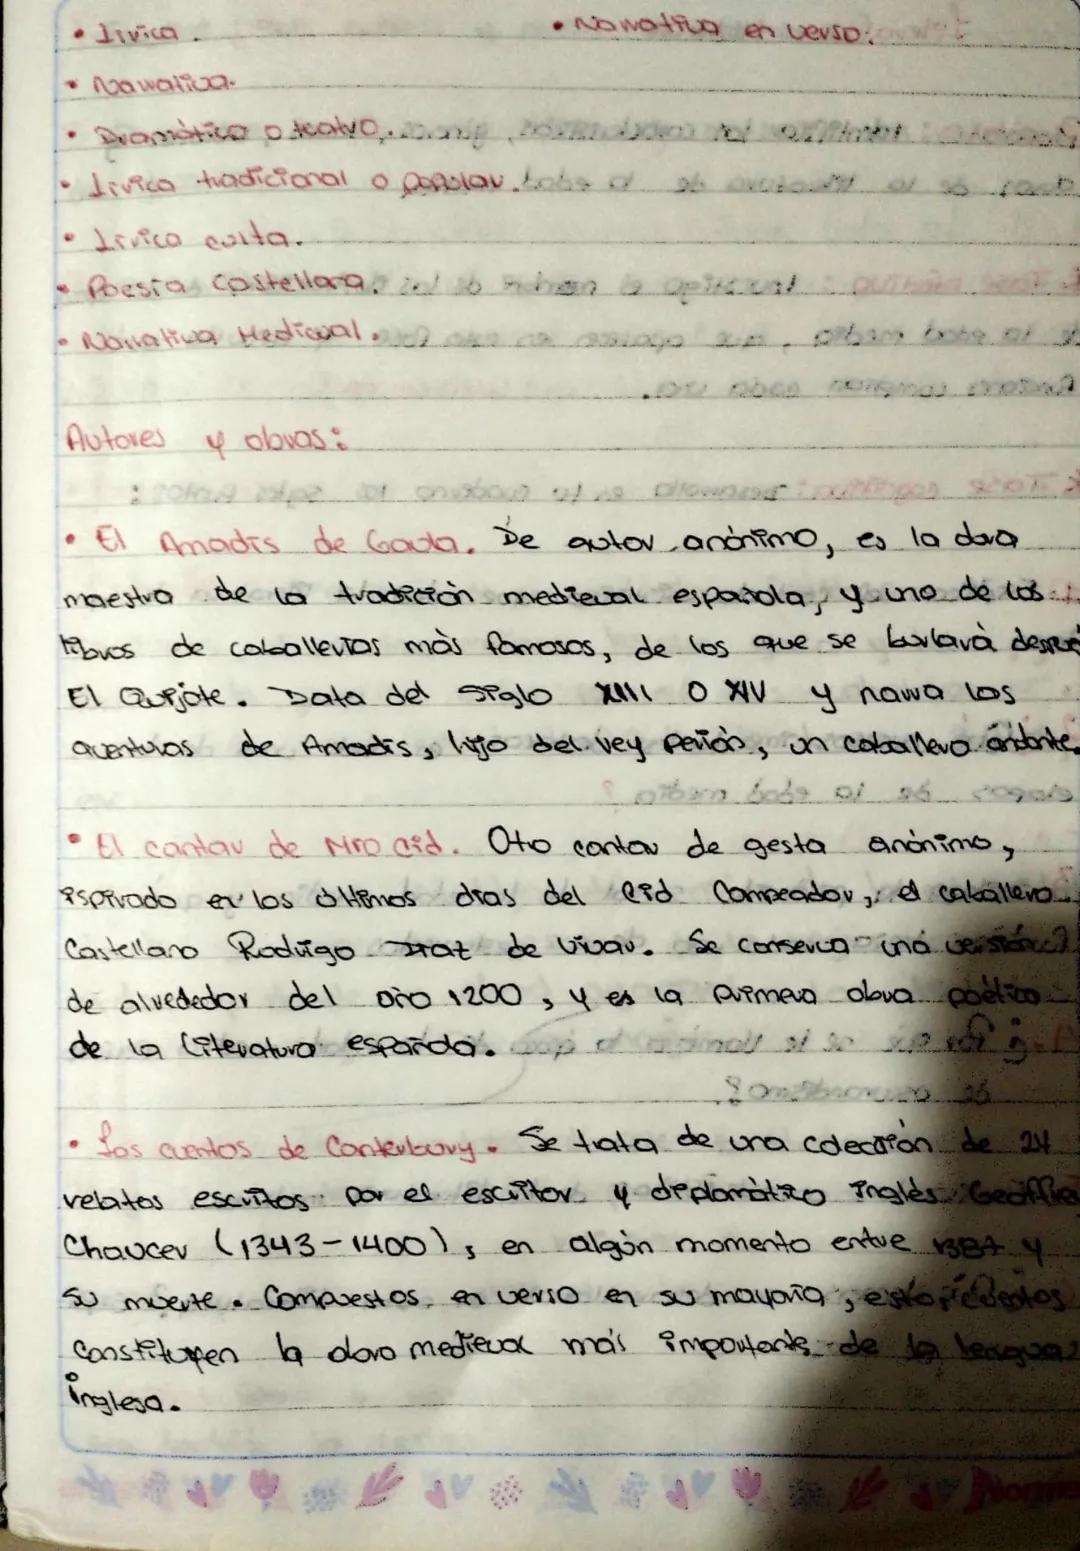 • Lírica.
• Narrativa en verso.
• Narrativa.
• Dramático o teatro.
• Lírica tradicional o popular.
• Lírica culta.
• Poesía Castellana.
• Narrativa Medieval.
Autores y obras:
• El Amadís de Gaula. De autor anónimo, es la obra
maestra de la tradición medieval española, y uno de los
libros de caballerías más famosos, de los que se burlará después
El Quijote. Data del siglo XIII O XIV y narra las
aventuras de Amadís, hijo del rey perión, un caballero andante.
• El cantar de Mio cid. Otro cantar de gesta anónimo,
ispirado en los últimos días del Cid Campeador, el caballero
Castellano Rodrigo Díaz de Vivar. Se conserva una versión
de alrededor del año 1200, y es la primera obra poética
de la literatura española.
• Los cuentos de Canterbury. Se trata de una colección de 24
relatos escritos por el escritor y diplomático Inglés
Chaucer (1343-1400), en algún momento entre 1387 y
su muerte. Compuestos en verso en su mayoría, estos cuentos
Constituyen la obra medieval más importante de la lengua
inglesa.
Norma